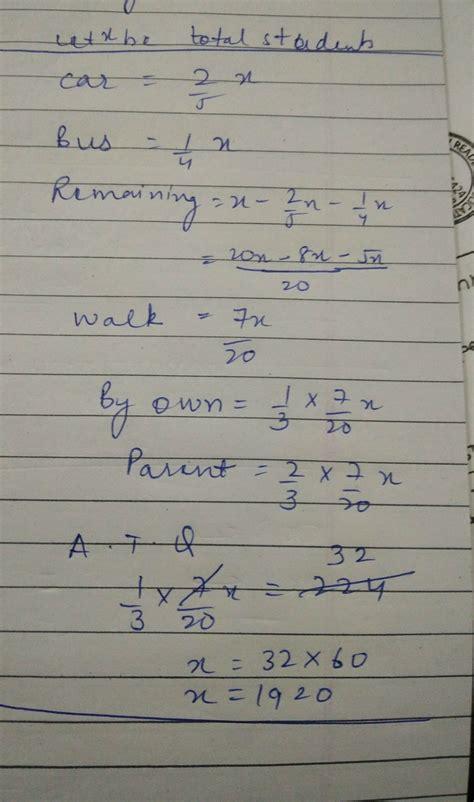 let x be total students
car = 2/5 x
Bus = 1/4 x
Remaining = x - 2/5x - 1/4x
= 20x - 8x - 5x / 20
walk = 7x/20
By own = 1/3 × 7/20 x
Parent = 2/3 × 7/20 x
A.T.Q 32
1/3 × 7/20 x = 224
x = 32 × 60
x = 1920